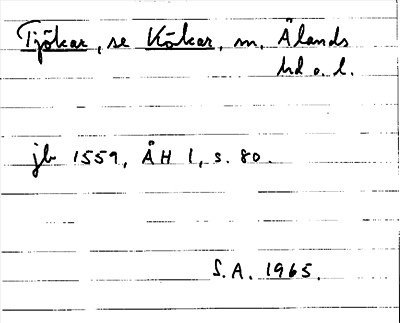 Tjökar, se Kökar, sn, Ålands
hd o. l.
jb 1559, ÅH 1, s. 80.
S.A. 1965.